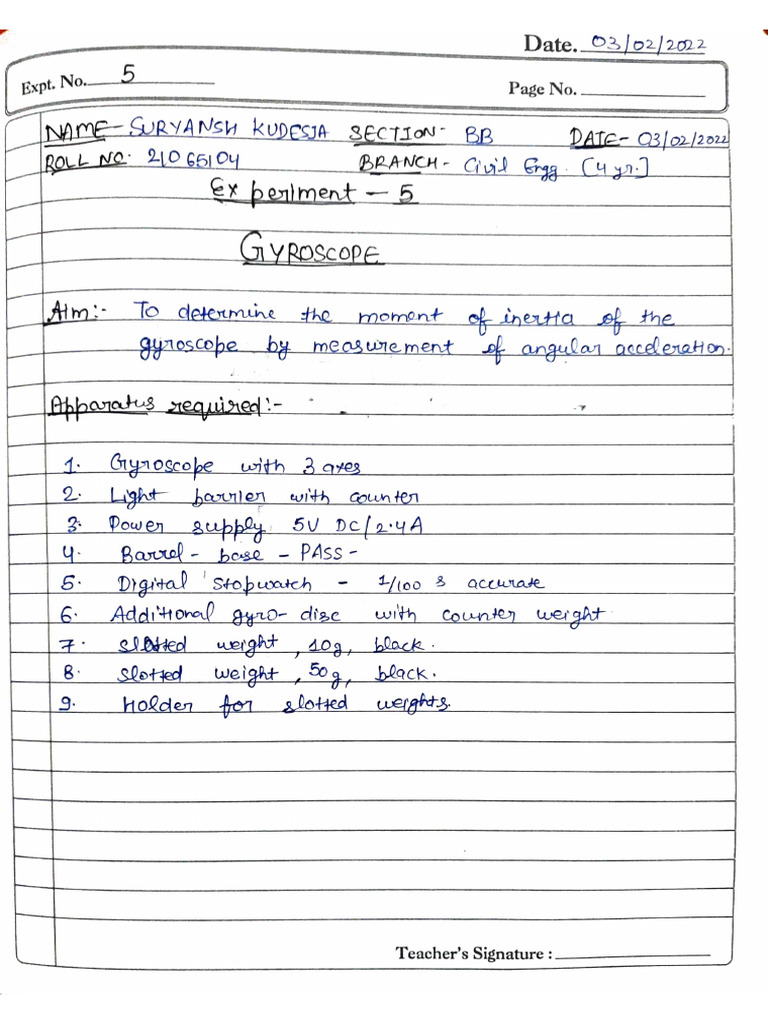 Date. 03/02/2022
Expt. No. 5
Page No.
NAME- SURYANSH KUDESIA SECTION- BB DATE- 03/02/2022
ROLL NO: 21065104 BRANCH- Civil Engg. [4 yr.]
Experiment - 5
GYROSCOPE
Aim:- To determine the moment of inertia of the
gyroscope by measurement of angular acceleration.
Apparatus required:-
1. Gyroscope with 3 axes
2. Light barrier with counter
3. Power supply 5V DC/2.4A
4. Barrel - base - PASS -
5. Digital stopwatch - 1/100 s accurate
6. Additional gyro-disc with counter weight
7. slotted weight, 10g, black.
8. slotted weight, 50g, black.
9. Holder for slotted weights.
Teacher's Signature :